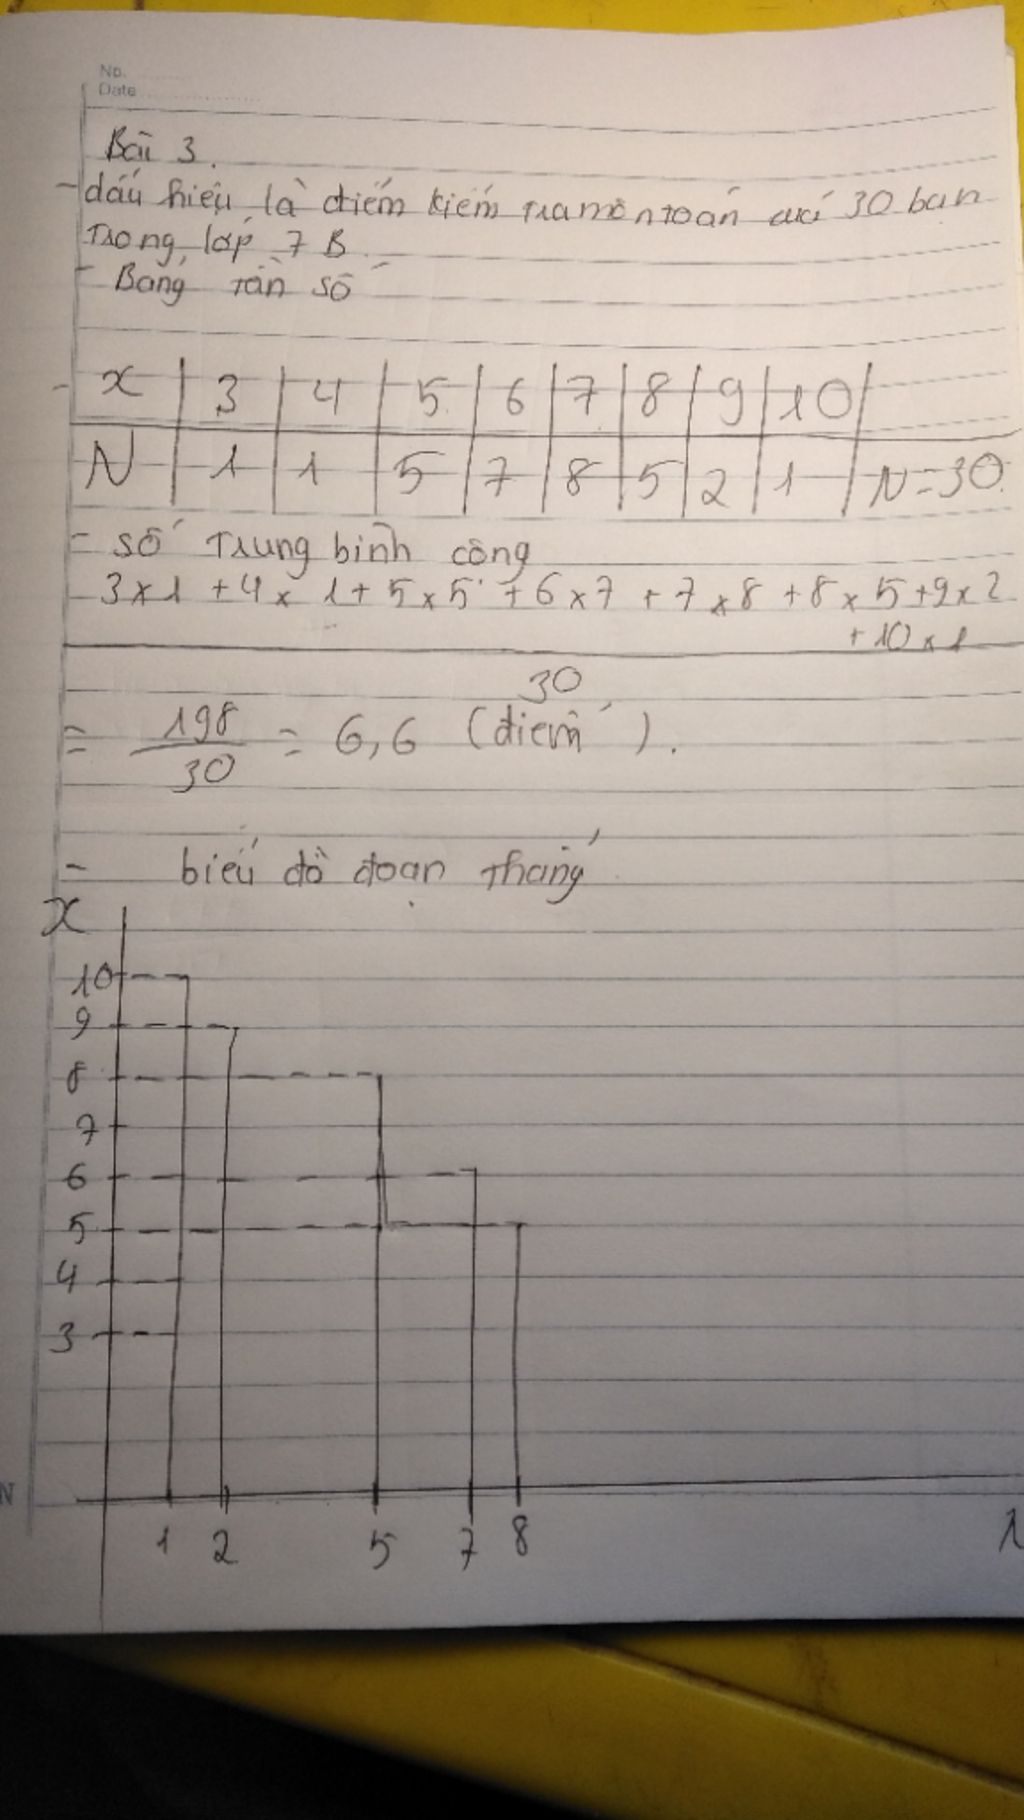 No.
Date
Bài 3.
- dấu hiệu là điểm kiểm tra môn toán của 30 bạn
Trong lớp 7B.
- Bảng Tần số
x 3 4 5 6 7 8 9 10
N 1 1 5 7 8 5 2 1 N=30
- số Trung bình cộng
3x1 + 4x1 + 5x5 + 6x7 + 7x8 + 8x5 + 9x2
+ 10x1
30
= 198/30 = 6,6 (điểm).
- biểu đồ đoạn thẳng
x
10
9
8
7
6
5
4
3
N
1 2 5 7 8